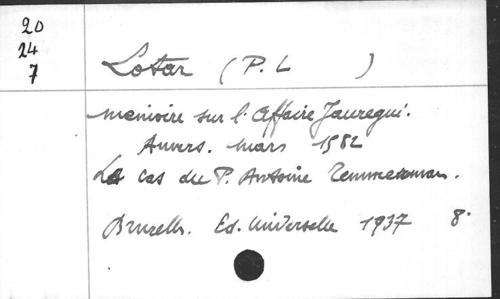 20
24
7
Lotar (P. L )
Mémoire sur l'affaire Jauregui.
Anvers. Mars 1582
Le cas du P. Antoine Temmerman.
Bruxelles. Ed. Universelle 1937 8°